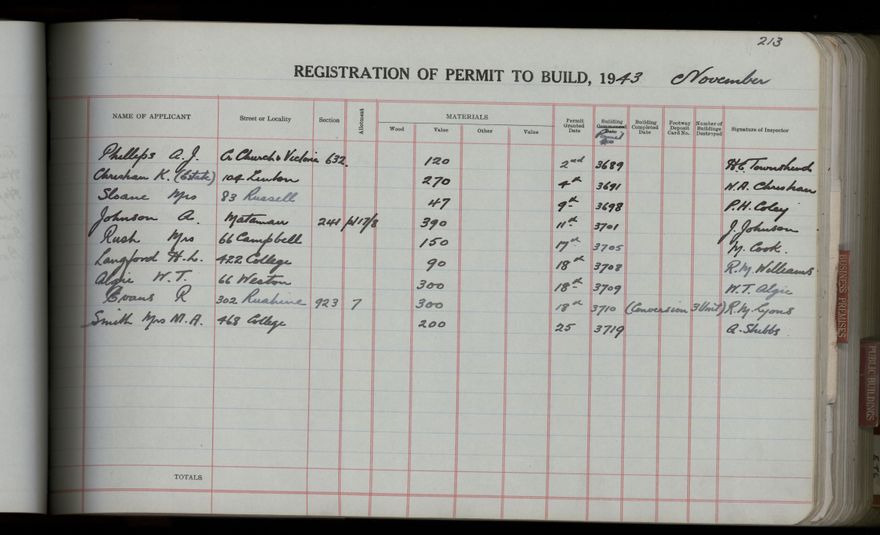 213
REGISTRATION OF PERMIT TO BUILD, 1943 November
NAME OF APPLICANT Street or Locality Section Allotment MATERIALS Wood Value Other Value Permit Granted Date Building Date Building Completed Date Footway Deposit Card No. Number of Buildings Destroyed Signature of Inspector
Phillips A. J. Church & Victoria 632 120 2nd 3689 H.E. Townshend
Chrishan K. (Estate) 104 Linton 270 4th 3691 N.A. Chrishan
Sloane Mrs 83 Russell 47 9th 3698 P.H. Coley
Johnson A. Matamau 241 17/8 390 11th 3701 J. Johnson
Rush Mrs 66 Campbell 150 17th 3705 M. Cook.
Langford H.L. 422 College 90 18th 3708 R.M. Williams
Algie W.T. 66 Weston 300 18th 3709 W.T. Algie
Evans R 302 Ruahine 923 7 300 18th 3710 (Conversion 3 Unit) R.M. Lyons
Smith Mrs M.A. 468 College 200 25 3719 A. Stubbs
TOTALS
BUSINESS PREMISES
PUBLIC BUILDINGS